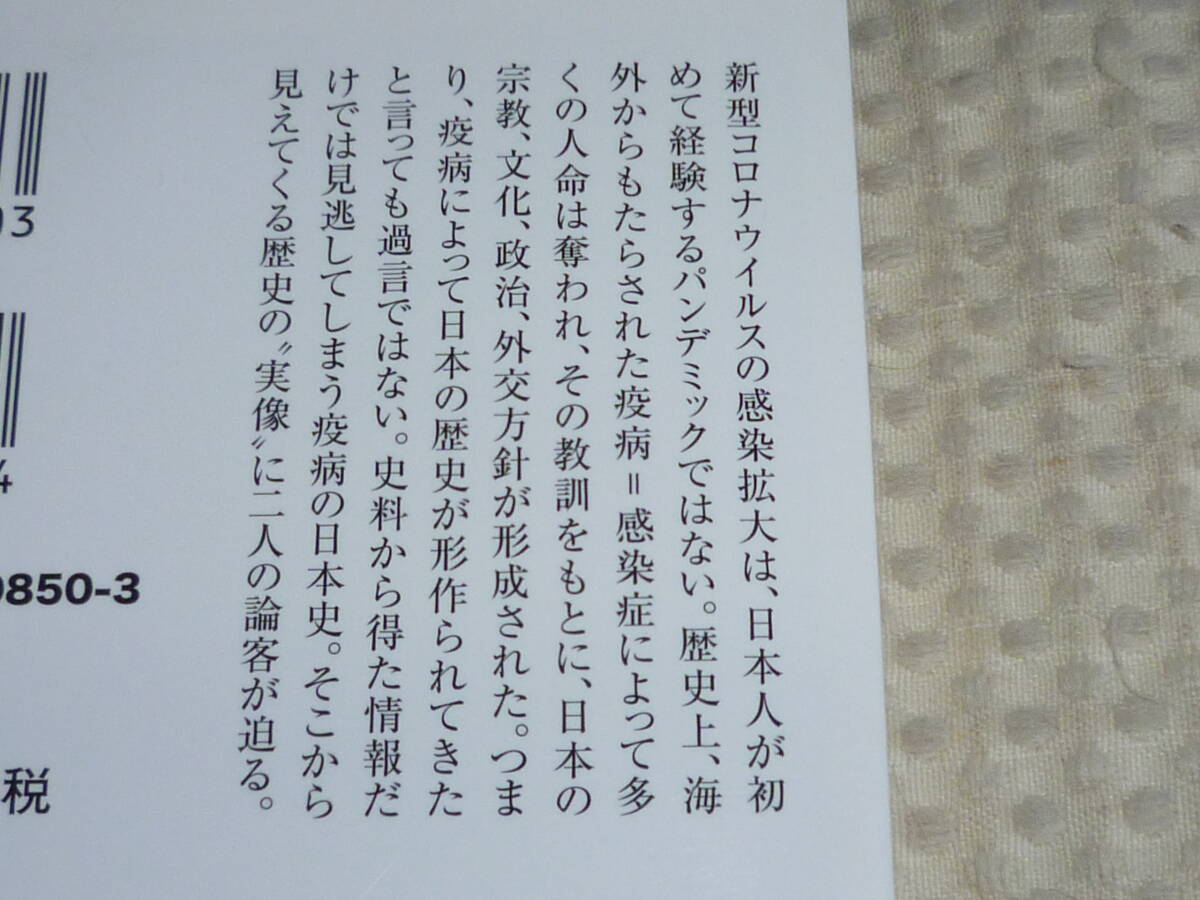 新型コロナウイルスの感染拡大は、日本人が初
めて経験するパンデミックではない。歴史上、海
外からもたらされた疫病＝感染症によって多
くの人命は奪われ、その教訓をもとに、日本の
宗教、文化、政治、外交方針が形成された。つま
り、疫病によって日本の歴史が形作られてきた
と言っても過言ではない。史料から得た情報だ
けでは見逃してしまう疫病の日本史。そこから
見えてくる歴史の〝実像〟に二人の論客が迫る。
03
4
0850-3
税